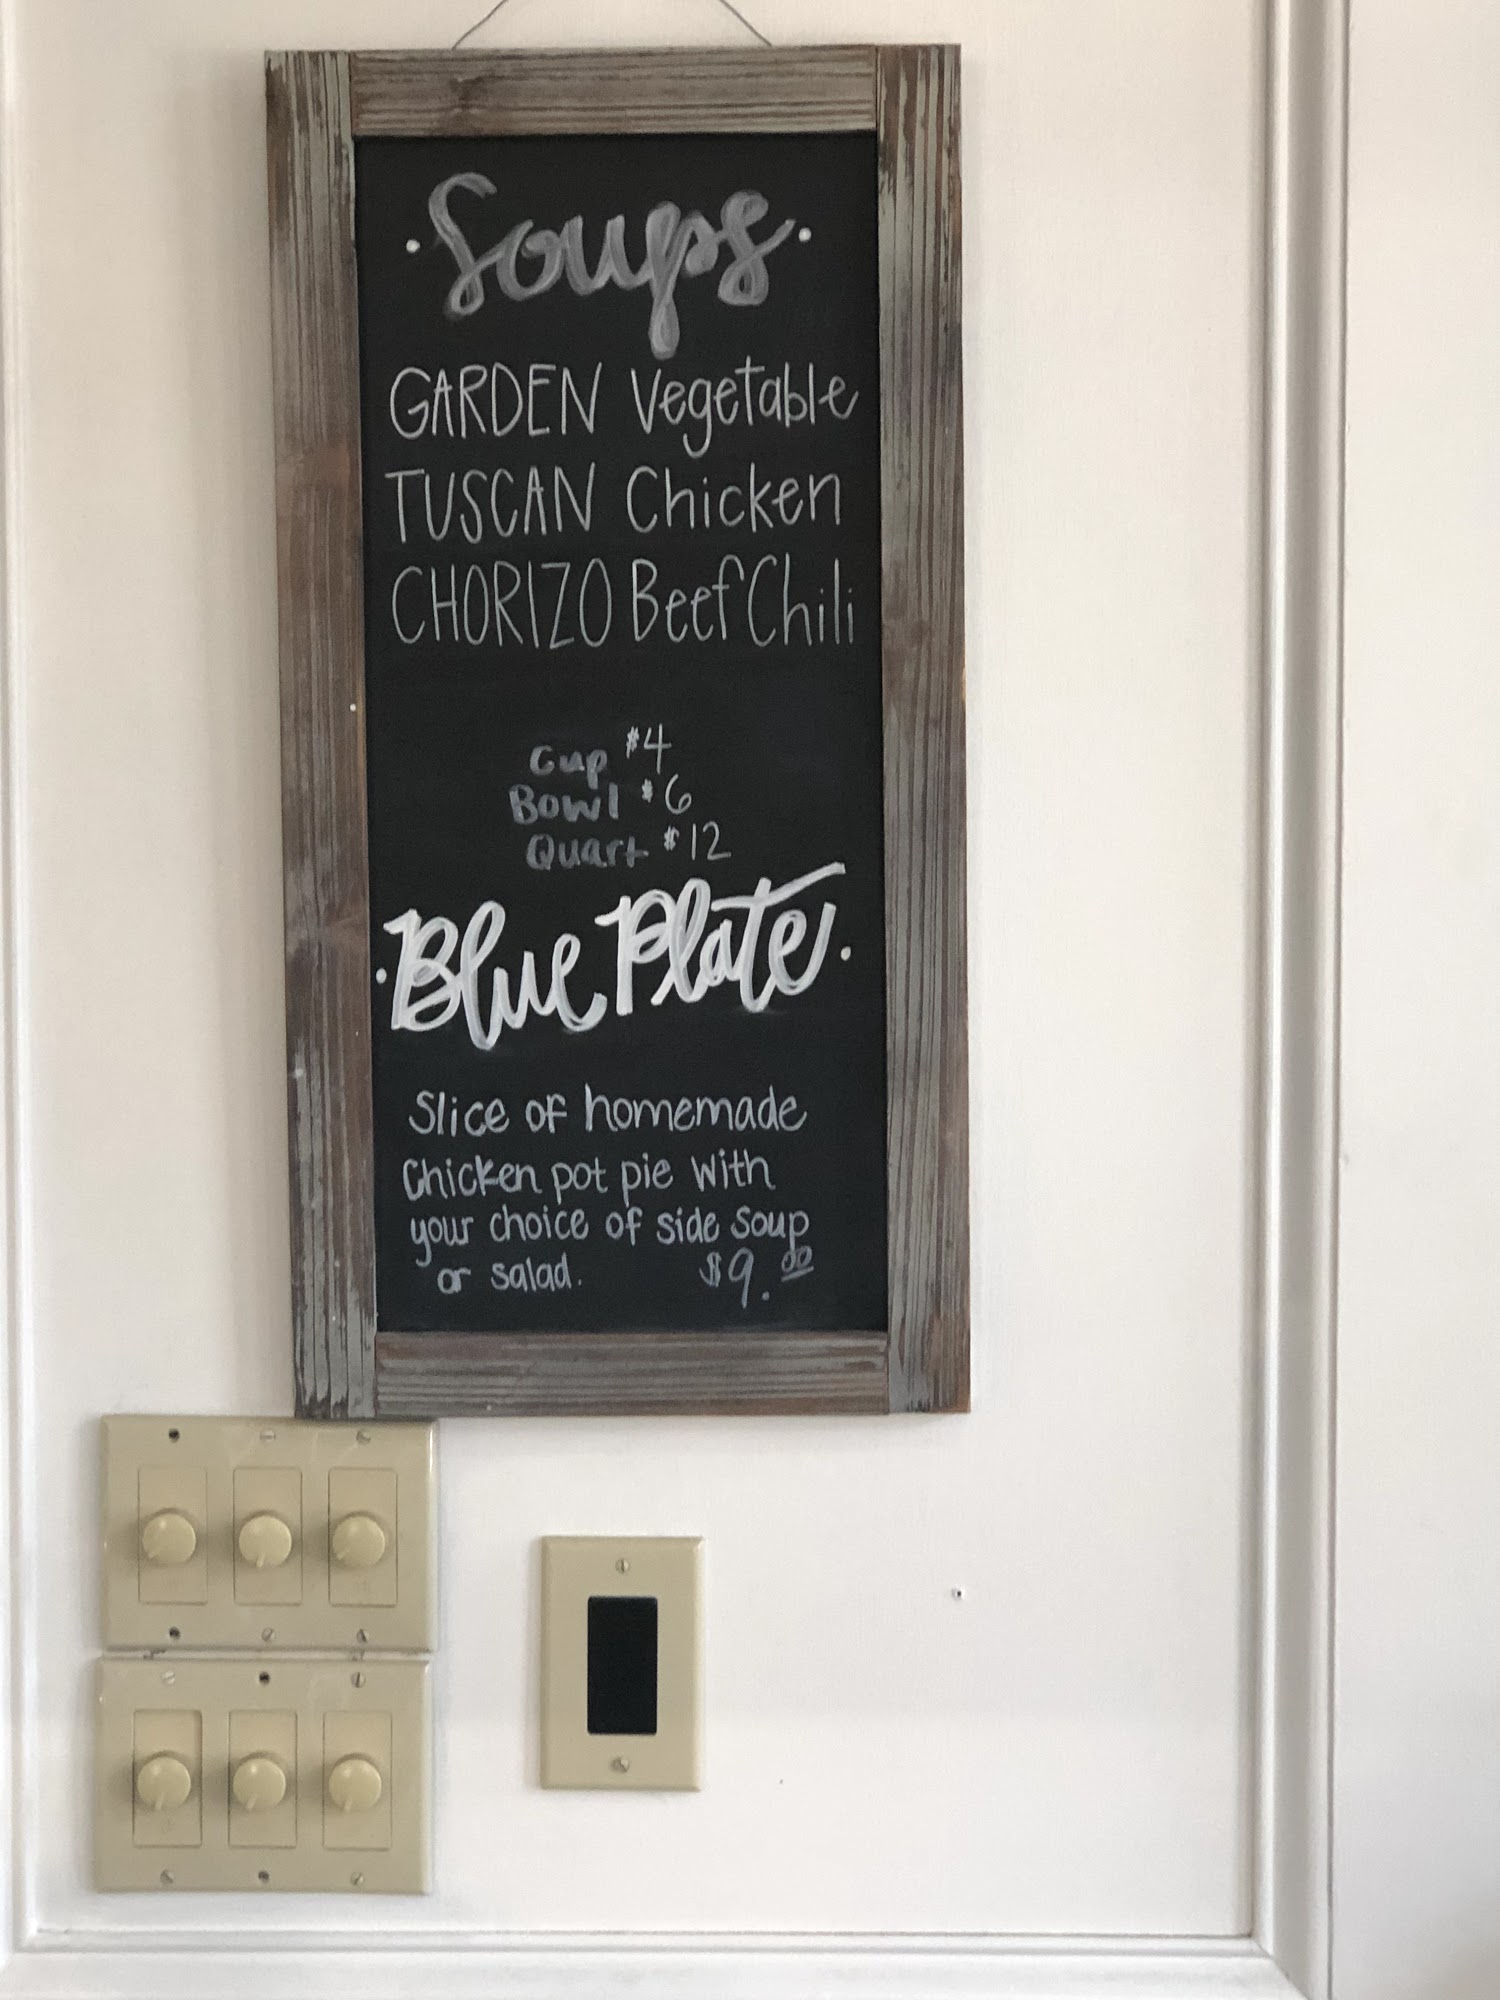 · Soups ·
GARDEN Vegetable
TUSCAN Chicken
CHORIZO Beef Chili
Cup $4
Bowl $6
Quart $12
· Blue Plate ·
Slice of homemade
Chicken pot pie with
your choice of side soup
or salad. $9.00